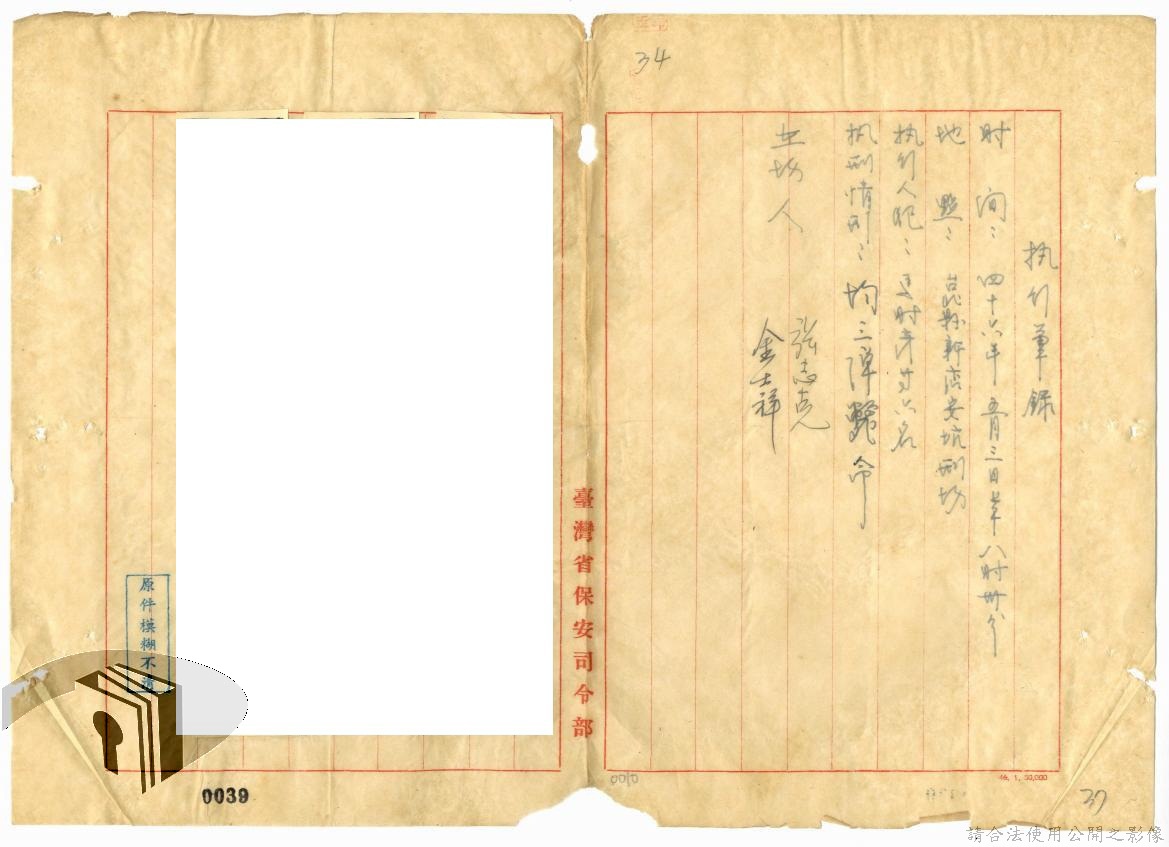 34
执行筆錄
时間：四十六年五月三日上午八时卅分
地點：台北縣新店安坑刑場
执行人犯：等廿六名
执刑情形：均三彈斃命
在場人
張志克
金士祥
臺灣省保安司令部
原件模糊不清
0039
0010
46. 1. 50,000
37
請合法使用公開之影像